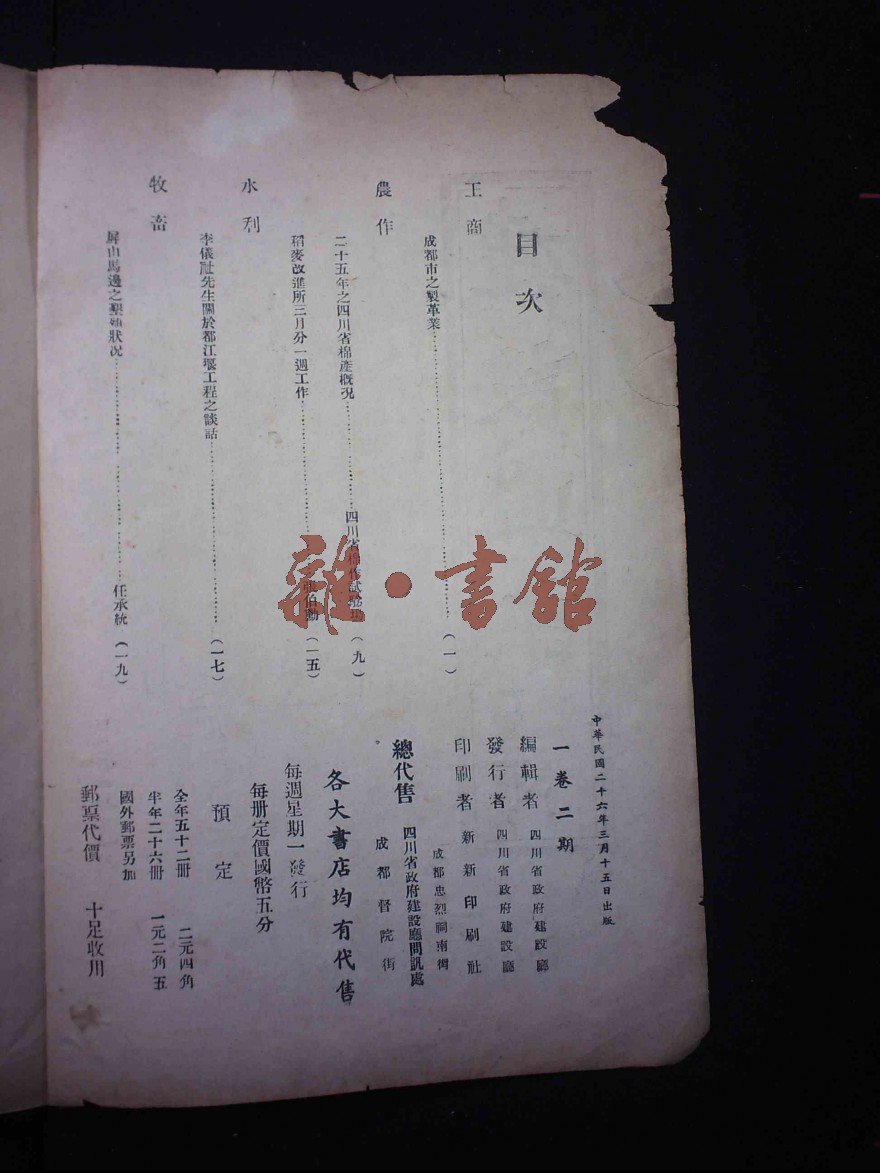 目次
工商
成都市之製革業……(一)
農作
二十五年之四川省棉產概况……四川省棉作試驗場(九)
稻麥改進所三月分一週工作……張伯勳(一五)
水利
李儀祉先生關於都江堰工程之談話……(一七)
牧畜
屏山馬邊之墾殖狀况……任承統(一九)
中華民國二十六年三月十五日出版
一卷二期
編輯者 四川省政府建設廳
發行者 四川省政府建設廳
印刷者 新新印刷社
成都忠烈祠南街
總代售 四川省政府建設廳問訊處
成都督院街
各大書店均有代售
每週星期一發行
每册定價國幣五分
預定
全年五十二册 二元四角
半年二十六册 一元二角五
國外郵票另加
郵票代價 十足收用
雜·書館